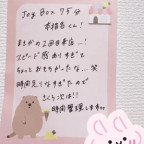 Joy Box 75分
本指名くん!
まさかの2回目来店...!
スピード感ありすぎて
ちょっとおもろかったな...笑
時間足りなすぎたので
さくらつは!!
時間管理しますね